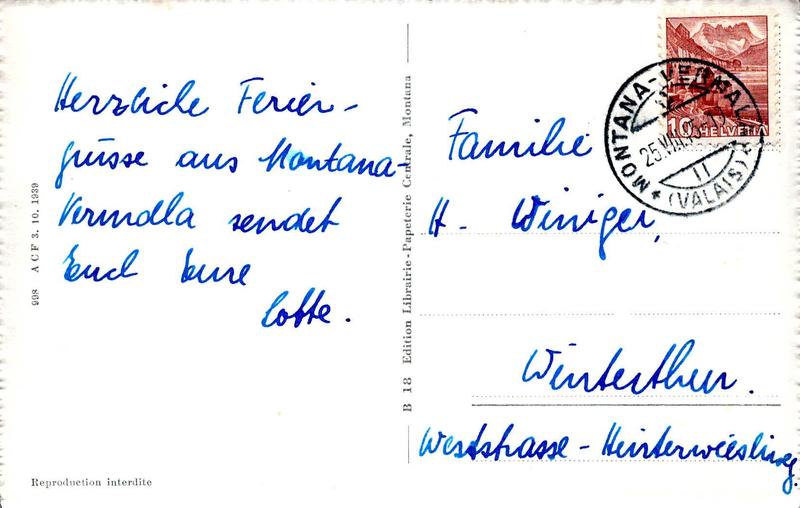 Herzliche Ferien-
grüsse aus Montana-
Vermala sendet
Euch Eure
Lotte.
998 A C F 3. 10. 1939
Reproduction interdite
B 18 Edition Librairie-Papeterie Centrale, Montana
10 HELVETIA
MONTANA-VERMALA
25.VIII
11
(VALAIS)
Familie
H. Winiger,
Winterthur.
Weststrasse-